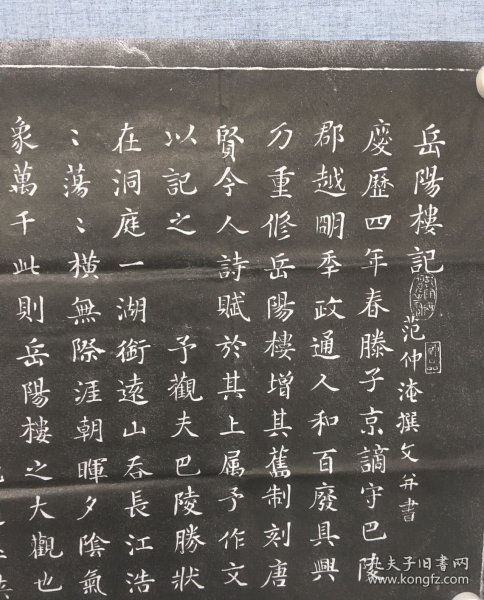 岳陽樓記 范仲淹撰文并書
慶歷四年春滕子京謫守巴陵
郡越明秊政通人和百廢具興
乃重修岳陽樓增其舊制刻唐
賢今人詩賦於其上属予作文
以記之 予觀夫巴陵勝狀
在洞庭一湖銜遠山吞長江浩
〻蕩〻橫無際涯朝暉夕陰氣
象萬千此則岳陽樓之大觀也
孔夫子旧书网
www.kongfz.com